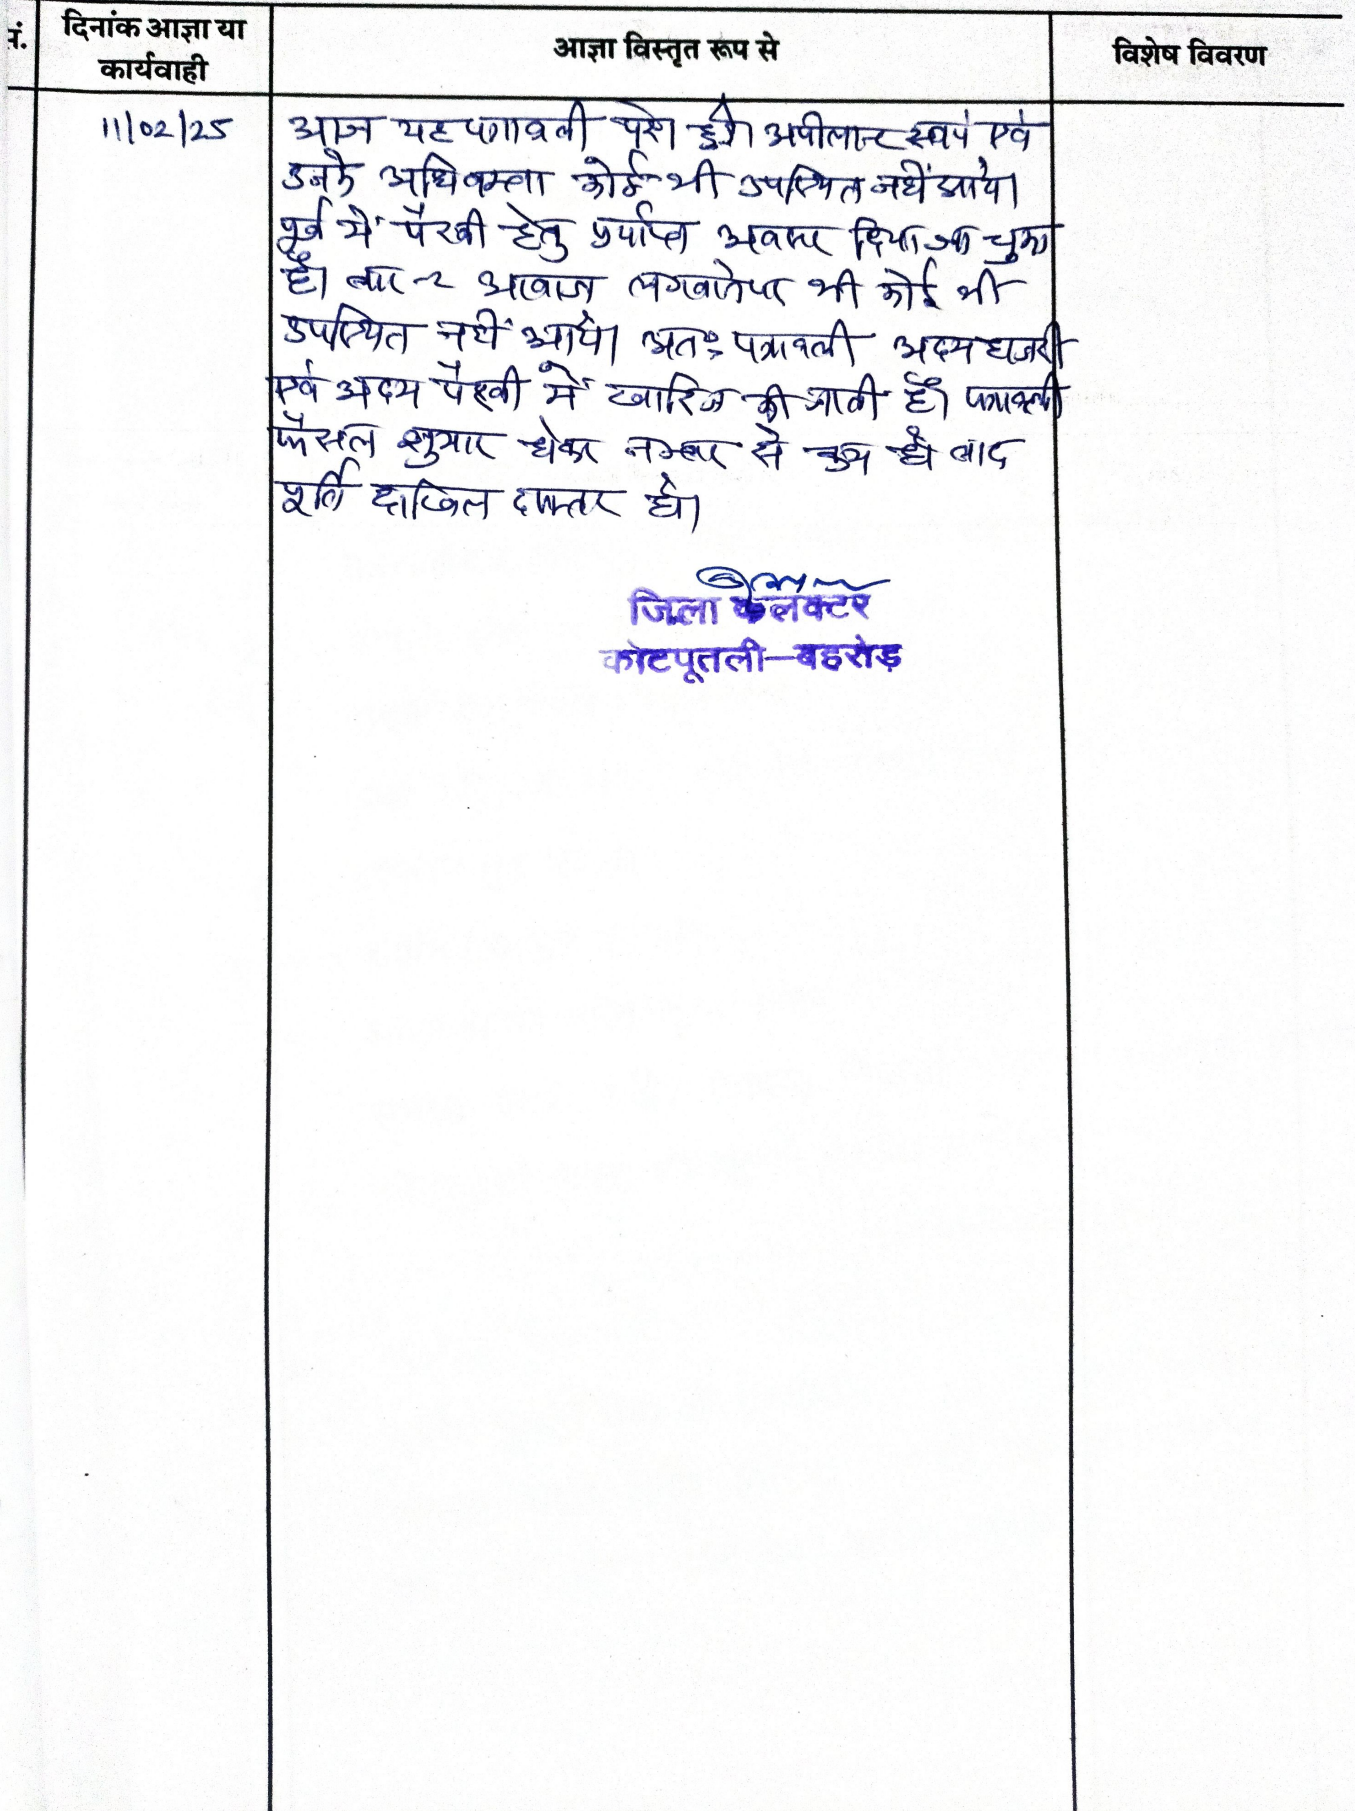 नं.
दिनांक आज्ञा या
कार्यवाही
आज्ञा विस्तृत रूप से
विशेष विवरण
11/02/25
आज यह पत्रावली पेश हुई। अपीलान्ट स्वयं एवं
उनके अधिवक्ता कोई भी उपस्थित नहीं आये।
पूर्व में पैरवी हेतु पर्याप्त अवसर दिया जा चुका
है। बार-2 आवाज लगवानेपर भी कोई भी
उपस्थित नहीं आये। अतः पत्रावली अदम हाजरी
एवं अदम पैरवी में खारिज की जाती है। पत्रावली
फैसल शुमार होकर नम्बर से कम हो बाद
पूर्ति दाखिल दफ्तर हो।
जिला कलेक्टर
कोटपूतली-बहरोड़